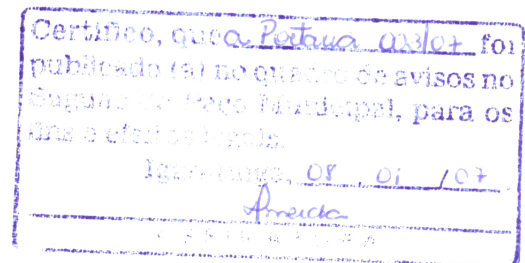 Certifico, que a Portaria 023/07 foi
publicado (a) no quadro de avisos no
Municipal, para os
fins e efeitos legais.
08 01 /07
Almeida